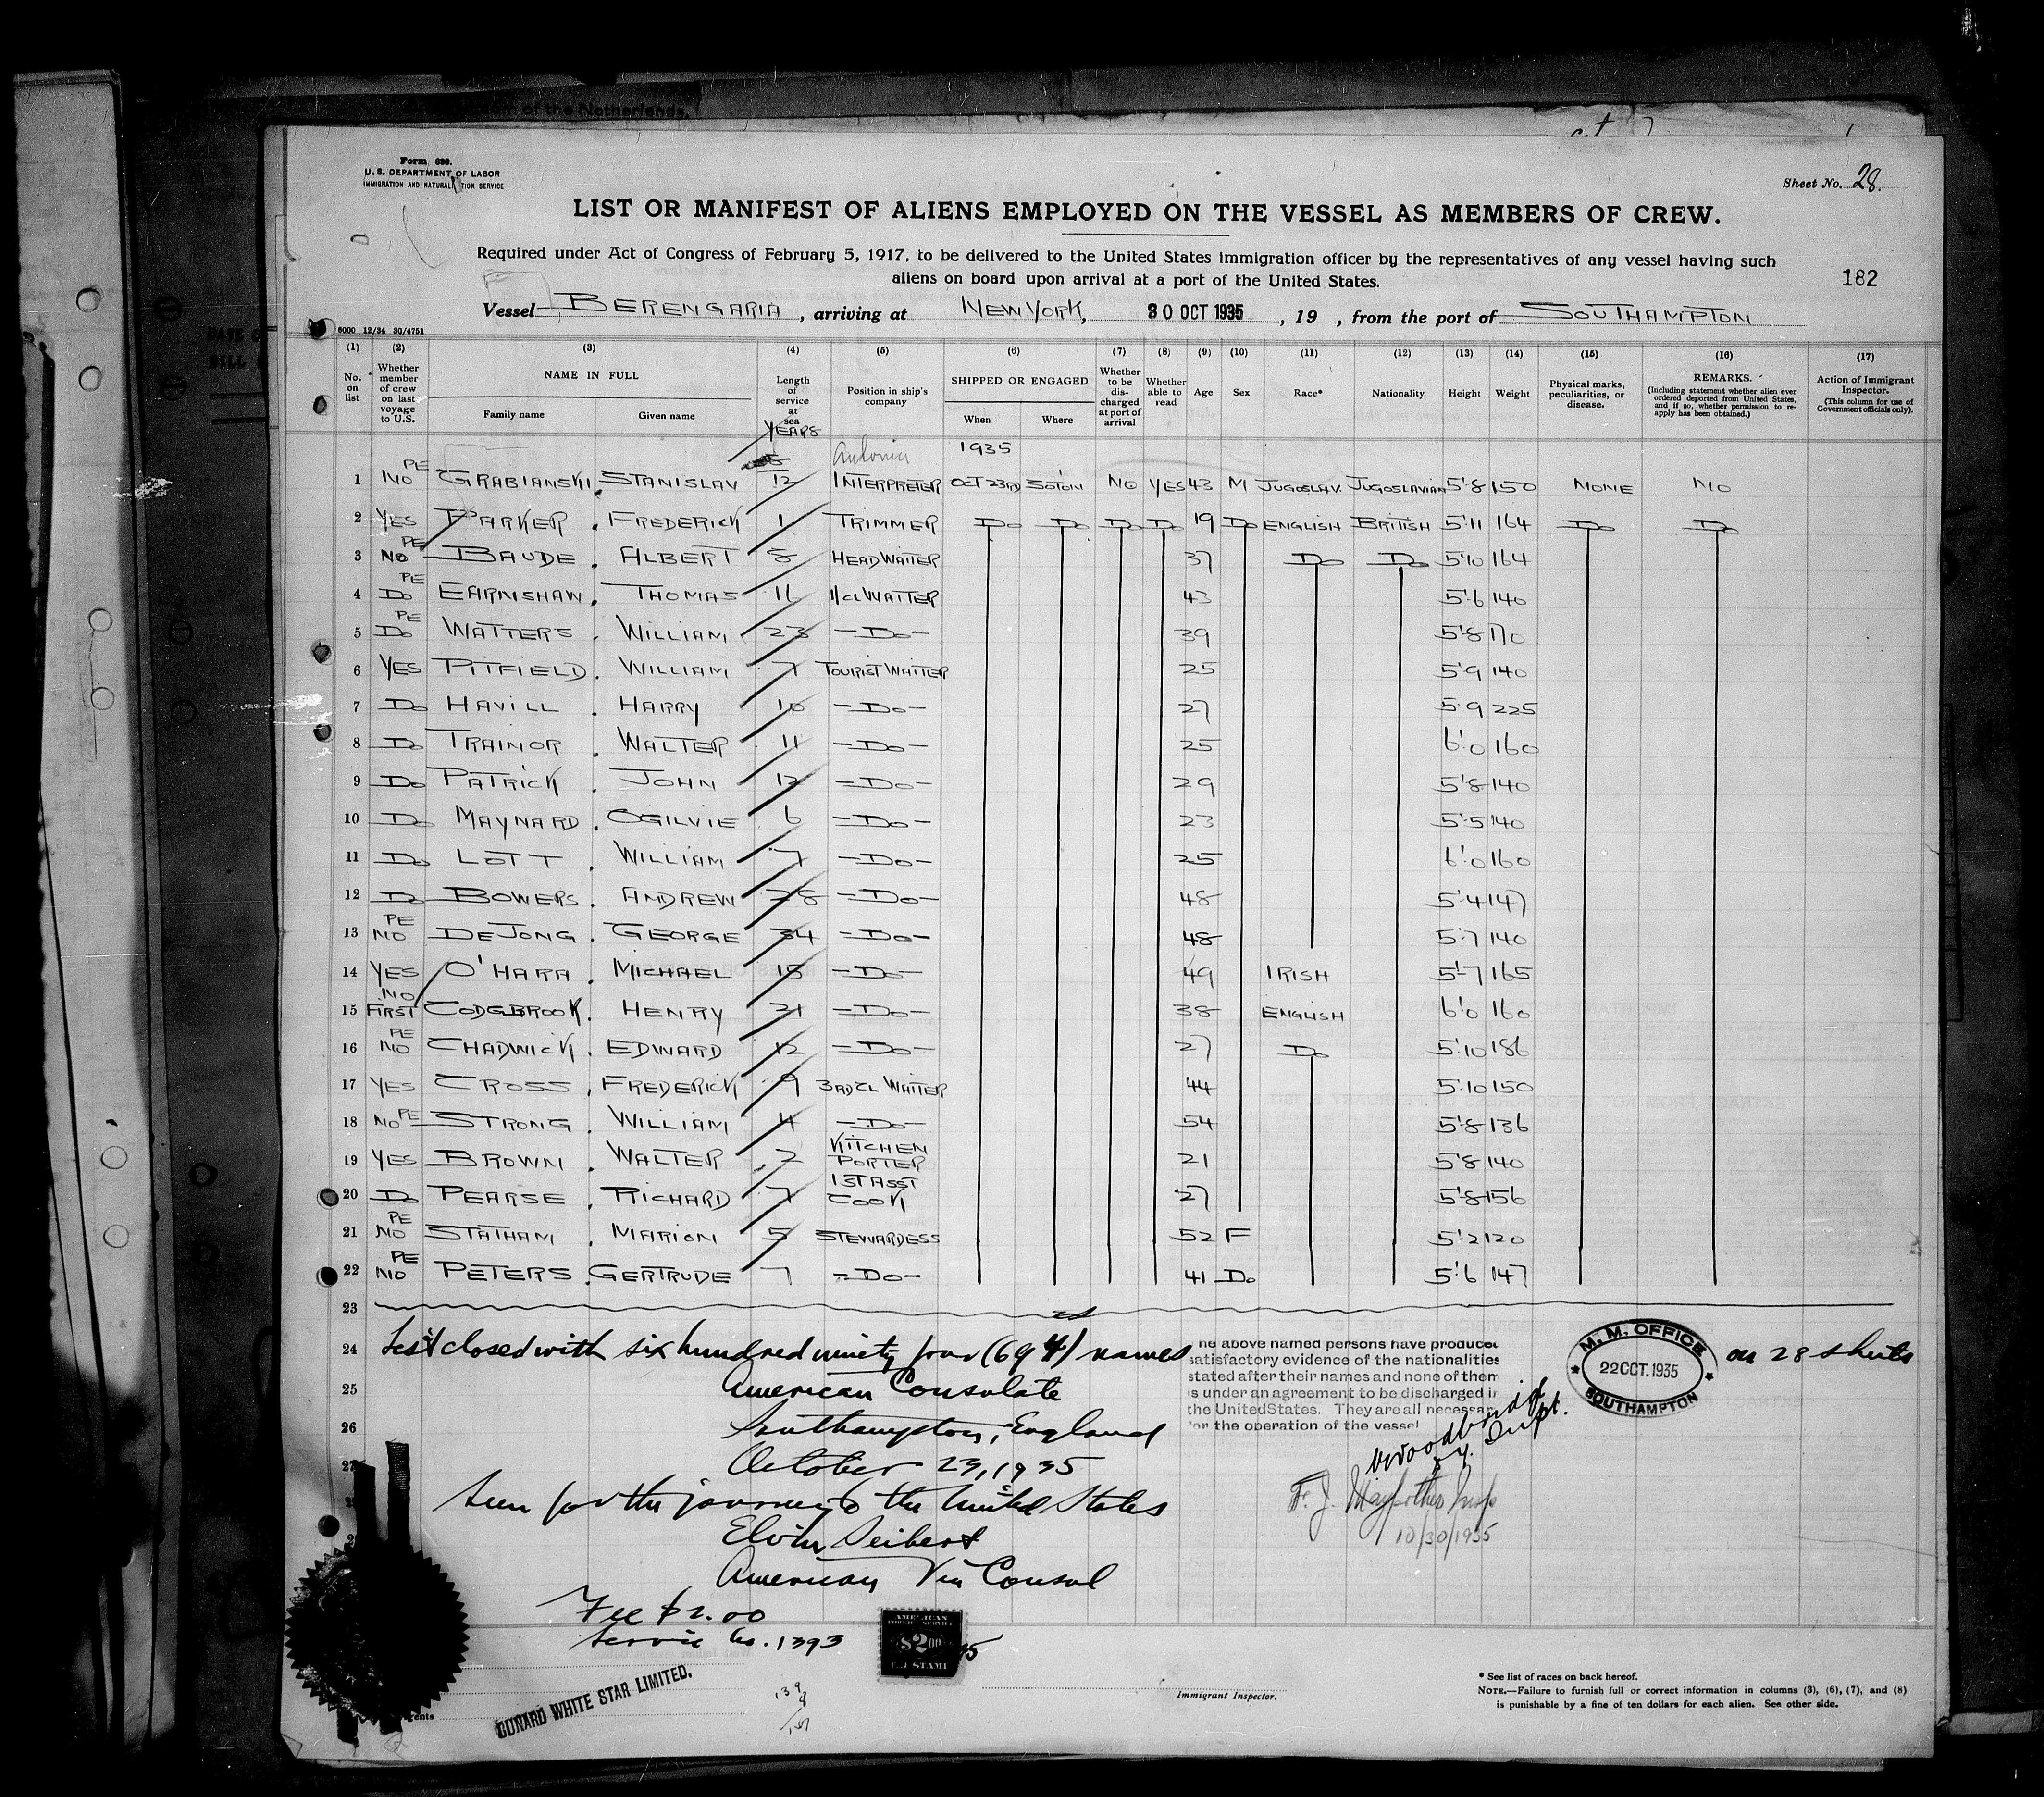 om of the Netherlands,
Form 680.
U. S. DEPARTMENT OF LABOR
IMMIGRATION AND NATURALIZATION SERVICE
Sheet No. 28.
LIST OR MANIFEST OF ALIENS EMPLOYED ON THE VESSEL AS MEMBERS OF CREW.
Required under Act of Congress of February 5, 1917, to be delivered to the United States immigration officer by the representatives of any vessel having such
aliens on board upon arrival at a port of the United States.
182
Vessel BERENGARIA, arriving at NEW YORK, 30 OCT 1935, 19 , from the port of SOUTHAMPTON
6000 12/34 30/4751
(1) (2) (3) (4) (5) (6) (7) (8) (9) (10) (11) (12) (13) (14) (15) (16) (17)
No. on list
Whether member of crew on last voyage to U.S.
NAME IN FULL
Family name Given name
Length of service at sea
YEARS
Position in ship's company
SHIPPED OR ENGAGED
When Where
Whether to be discharged at port of arrival
Whether able to read
Age
Sex
Race*
Nationality
Height
Weight
Physical marks, peculiarities, or disease.
REMARKS.
(Including statement whether alien ever ordered deported from United States, and if so, whether permission to reapply has been obtained.)
Action of Immigrant Inspector.
(This column for use of Government officials only).
Antonia 1935
1 NO PE GRABIANSKI. STANISLAV 12 INTERPRETER OCT 23RD SOTON NO YES 43 M JUGOSLAV. JUGOSLAVIAN 5'8 150 NONE NO
2 YES PARKER. FREDERICK 1 TRIMMER DO DO DO DO 19 DO ENGLISH BRITISH 5'11 164 DO DO
3 NO PE BAUDE. ALBERT 8 HEAD WAITER 37 DO DO 5'10 164
4 DO PE EARNSHAW. THOMAS 16 1/CL WAITER 43 5'6 140
5 DO PE WATTERS. WILLIAM 23 -DO- 39 5'8 170
6 YES PITFIELD. WILLIAM 7 TOURIST WAITER 25 5'9 140
7 DO HAVILL. HARRY 10 -DO- 27 5'9 225
8 DO TRAINOR. WALTER 11 -DO- 25 6'0 160
9 DO PATRICK. JOHN 12 -DO- 29 5'8 140
10 DO MAYNARD. OGILVIE 6 -DO- 23 5'5 140
11 DO LOTT. WILLIAM 7 -DO- 25 6'0 160
12 DO BOWERS. ANDREW 28 -DO- 48 5'4 147
13 NO PE DEJONG. GEORGE 34 -DO- 48 5'7 140
14 YES O'HARA. MICHAEL 18 -DO- 49 IRISH 5'7 165
15 NO FIRST CODGBROOK. HENRY 21 -DO- 38 ENGLISH 6'0 160
16 NO PE CHADWICK. EDWARD 12 -DO- 27 DO 5'10 186
17 YES CROSS. FREDERICK 9 3RD CL WAITER 44 5'10 150
18 NO PE STRONG. WILLIAM 4 -DO- 54 5'8 136
19 YES BROWN. WALTER 2 KITCHEN PORTER 21 5'8 140
20 DO PEARSE. RICHARD 7 1ST ASST COOK 27 5'8 156
21 NO PE STATHAM. MARION 5 STEWARDESS 52 F 5'2 120
22 NO PE PETERS. GERTRUDE 7 -DO- 41 DO 5'6 147
23
24 List closed with six hundred ninety four (694) names on 28 sheets
25 American Consulate
26 Southampton, England
27 October 23, 1935
Seen for the journey to the United States
Elvin Seibert
American Vice Consul
Fee $2.00
Service No. 1393
he above named persons have produced
satisfactory evidence of the nationalities
stated after their names and none of them
is under an agreement to be discharged in
the United States. They are all necessary
for the operation of the vessel
M. M. OFFICE
22 OCT. 1935
SOUTHAMPTON
10/30/1935
AMERICAN
FOREIGN SERVICE
$2.00
STAMP
CUNARD WHITE STAR LIMITED.
Immigrant Inspector.
* See list of races on back hereof.
NOTE.—Failure to furnish full or correct information in columns (3), (6), (7), and (8)
is punishable by a fine of ten dollars for each alien. See other side.